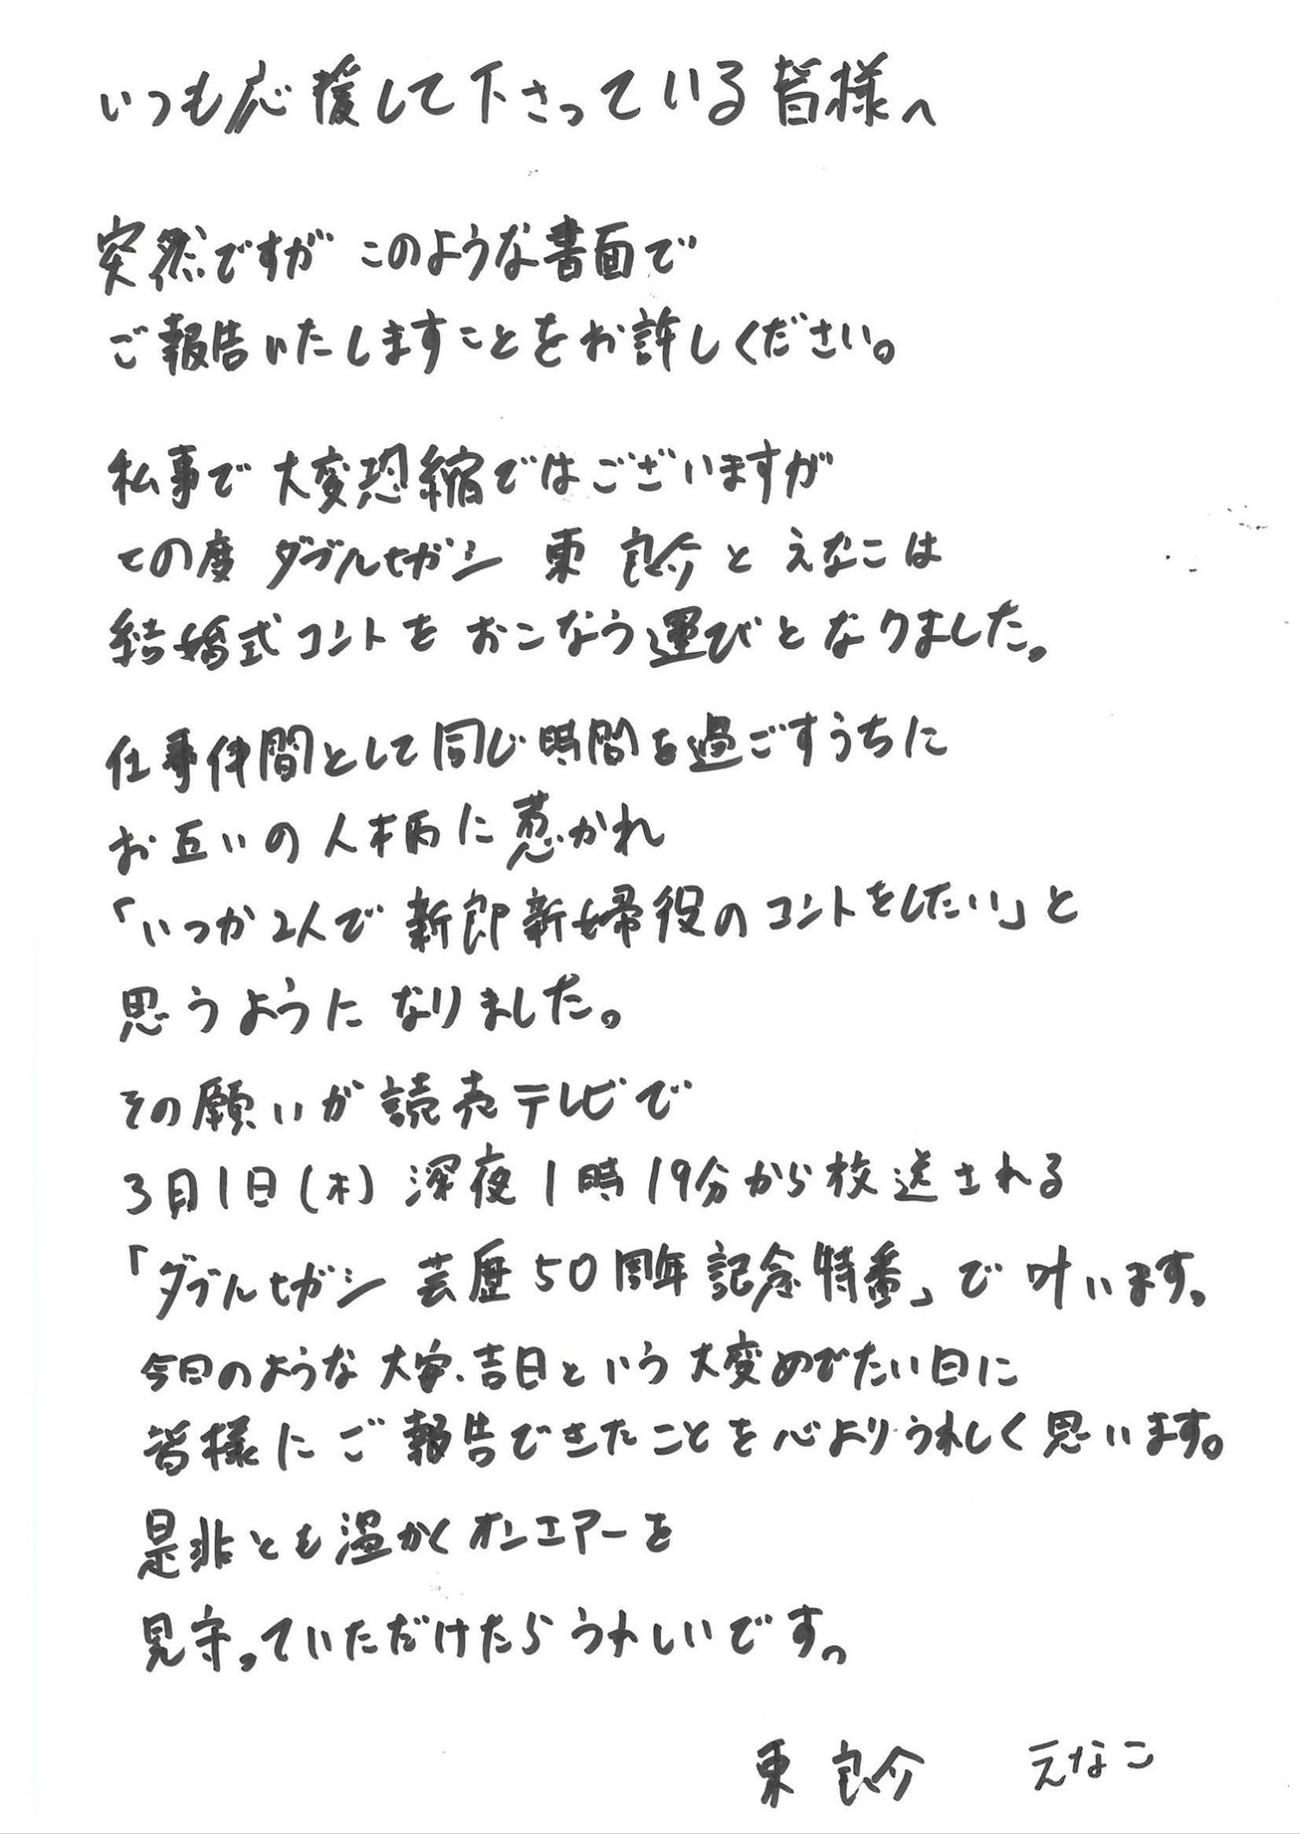 いつも応援して下さっている皆様へ
突然ですが このような書面で
ご報告いたしますことをお許しください。
私事で 大変恐縮ではございますが
この度 ダブルヒガシ 東 良介と えなこは
結婚式コントを おこなう運びとなりました。
仕事仲間として同じ時間を過ごすうちに
お互いの人柄に惹かれ
「いつか2人で 新郎新婦役のコントをしたい」と
思うように なりました。
その願いが 読売テレビで
3月1日(木) 深夜1時19分から放送される
「ダブルヒガシ 芸歴50周年記念特番」で叶います。
今日のような 大安、吉日という 大変めでたい日に
皆様に ご報告できたことを心よりうれしく思います。
是非とも温かくオンエアーを
見守っていただけたらうれしいです。
東 良介 えなこ